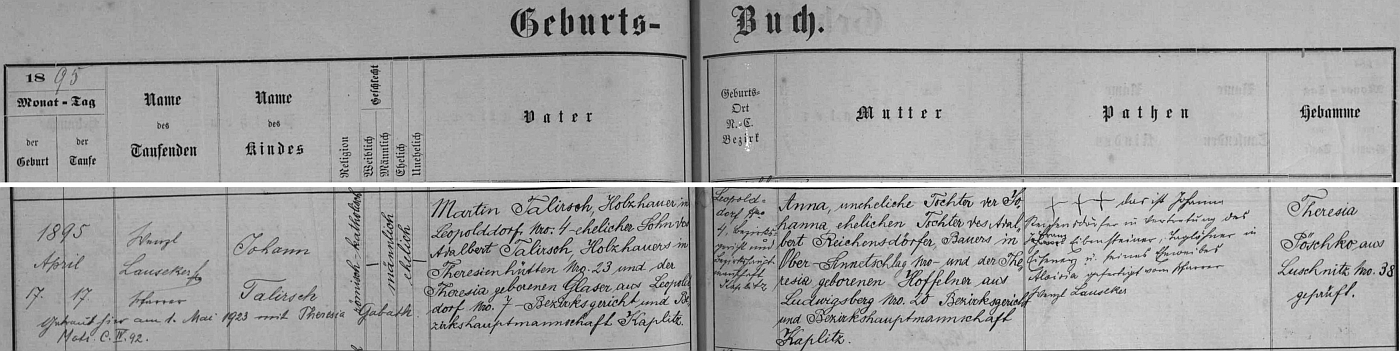 Geburts- Buch.
1895
Monat - Tag
der Geburt
der Taufe
Name des Taufenden
Name des Kindes
Religion
Geschlecht
Weiblich
Männlich
Ehelich
Unehelich
Vater
Geburts-Ort N.-C. Bezirk
Mutter
Pathen
Hebamme
1895
April
17. 17.
Wenzl
Lauseker
Pfarrer
Johann
Talirsch
römisch-katholisch
männlich
ehelich
Martin Talirsch, Holzhauer in
Leopolddorf Nro: 4 - ehelicher Sohn des
Adalbert Talirsch, Holzhauers in
Theresienhütten Nro. 23 und der
Theresia geborenen Glaser aus Leopold
dorf Nro. 7 - Bezirksgericht und Be
zirkshauptmannschaft Kaplitz.
Leopold=
dorf Nro.
4. Bezirks
gericht und
Bezirkshaupt
mannschaft
Kaplitz
Anna, uneheliche Tochter der Jo
hanna, ehelichen Tochter des Adal
bert Reichensdörfer, Bauers in
Ober-Sinnetschlag Nro - und der The
resia geborenen Hoffelner aus
Ludwigsberg Nro. 20 Bezirksgericht
und Bezirkshauptmannschaft
Kaplitz.
+ + + das ist Johann
in Vertretung des
Johann Eibensteiner, Taglöhner in
u. seines Eheweibes
Aloisia gefertigt vom Pfarrer
Wenzl Lauseker
Theresia
Pöschko, aus
Luschnitz Nro. 38
geprüft.
Getraut hier am 1. Mai 1923 mit Theresia Gabath
Matr. C. IV. 92.